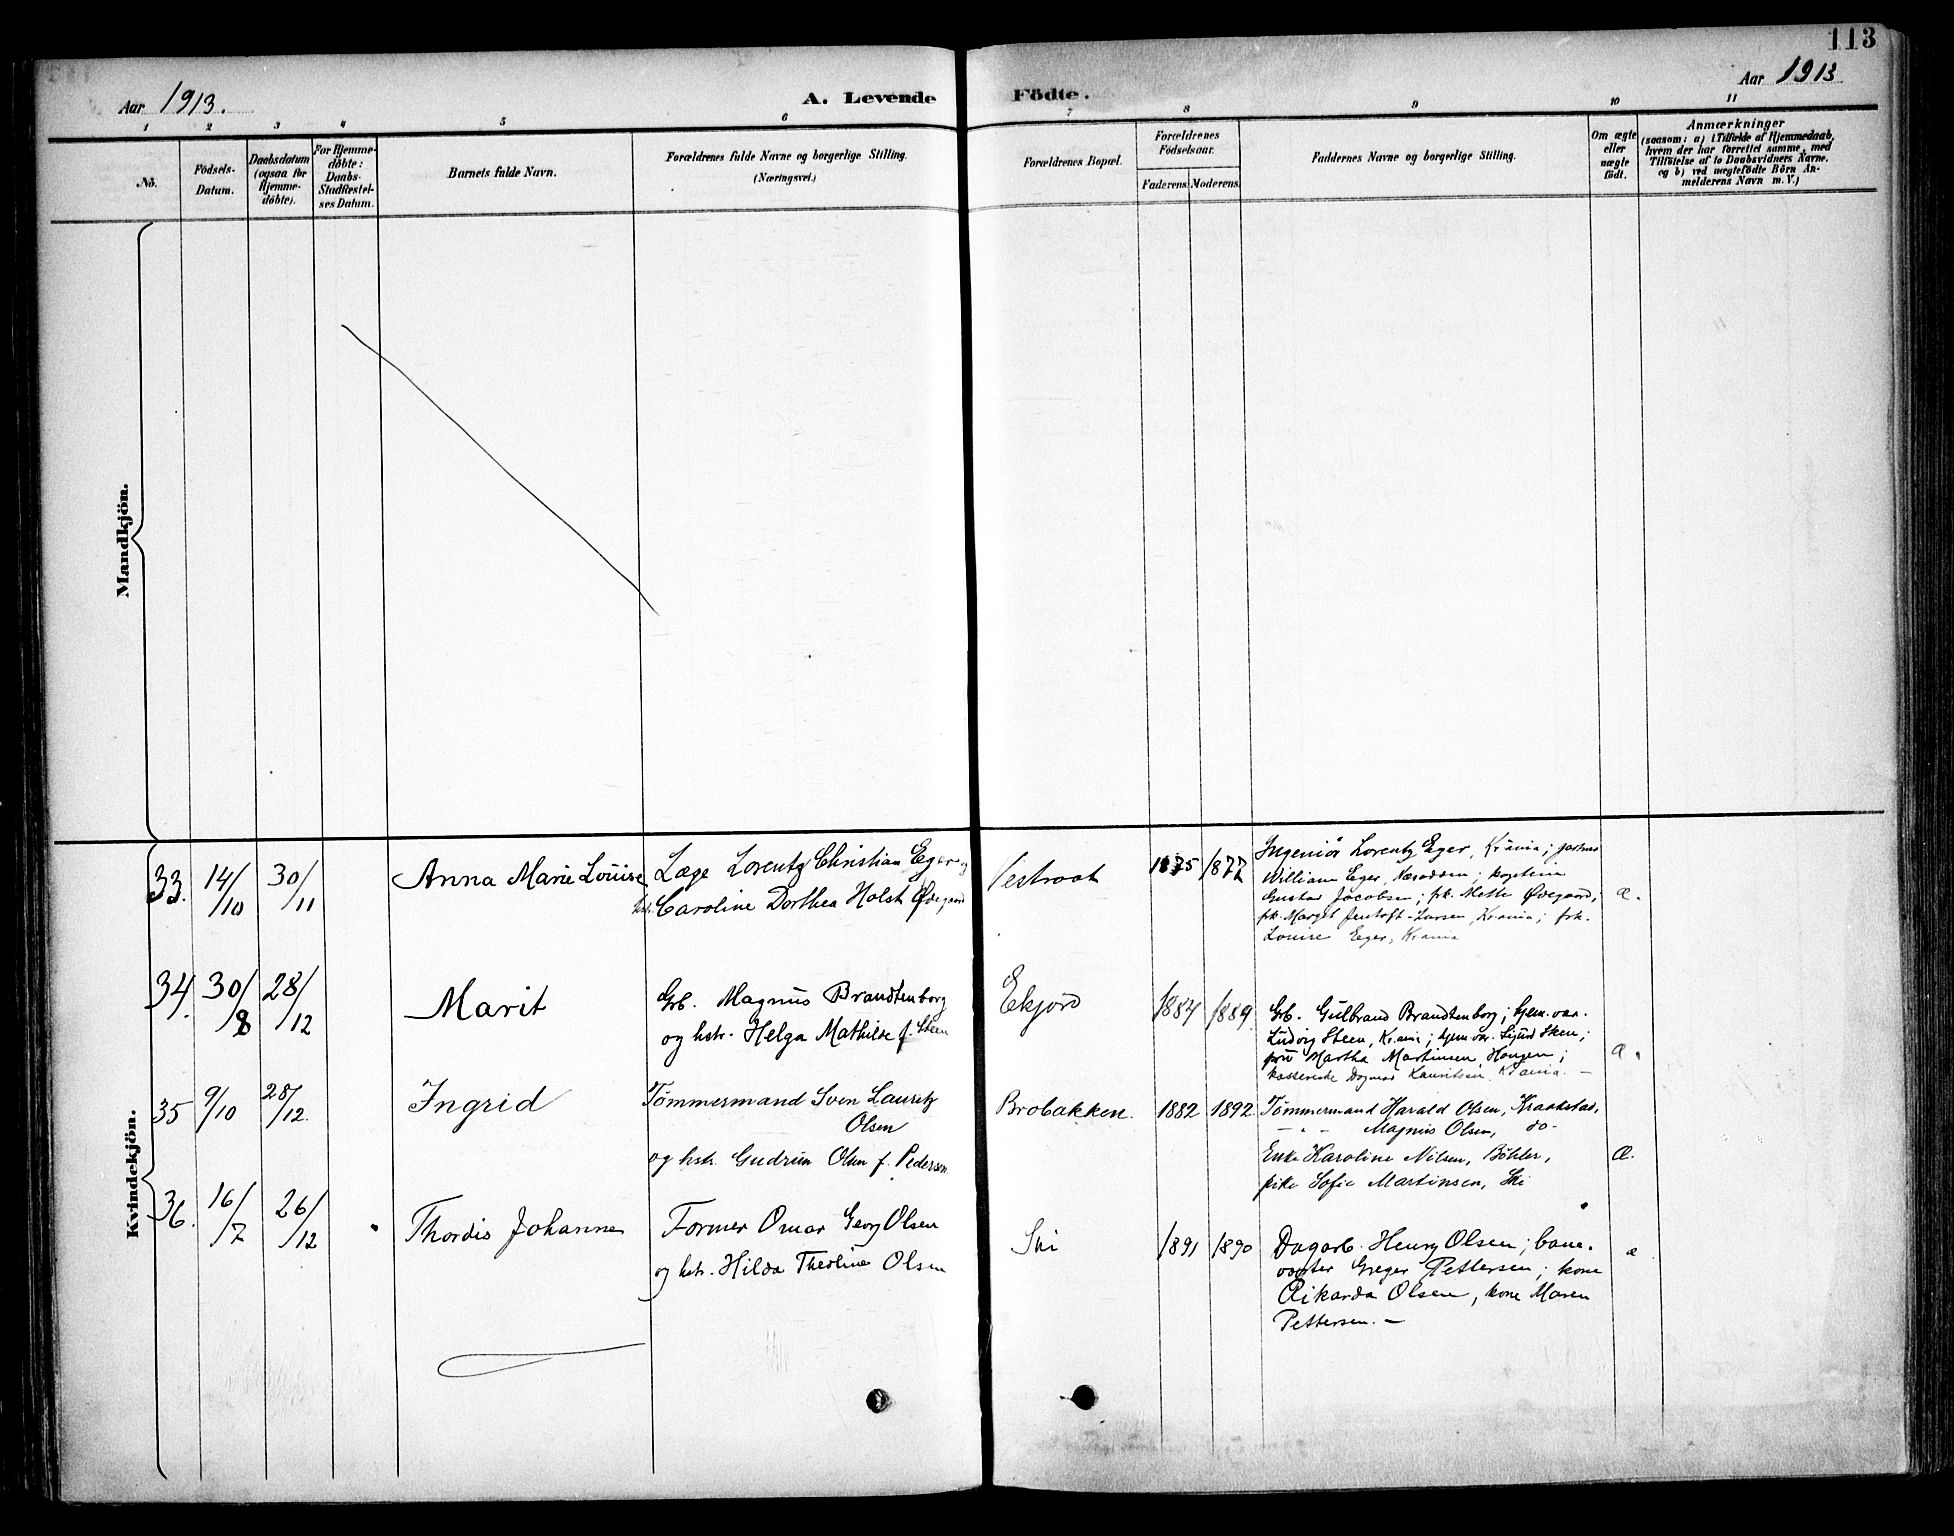 113
Aar 1913.
A. Levende Födte.
Aar 1913
1 2 3 4 5 6 7 8 9 10 11
No.
Födsels-Datum.
Daabsdatum (ogsaa for Hjemme-döbte).
For Hjemme-döbte: Daabs-Stadfæstel-ses Datum.
Barnets fulde Navn.
Forældrenes fulde Navne og borgerlige Stilling.
(Næringsvei.)
Forældrenes Bopæl.
Forældrenes Födselsaar.
Faderens. Moderens.
Faddernes Navne og borgerlige Stilling.
Om ægte eller uægte födt.
Anmærkninger
(saasom: a) i Tilfælde af Hjemmedaab,
hvem der har forrettet samme, med
Tilföielse af to Daabsvidners Navne.
og b) ved uægtefödte Börn An-
melderens Navn m. V.)
Mandkjön.
Kvindekjön.
33. 14/10 30/11 Anna Marie Louise
Læge Lorentz Christian Eger og
hstr. Caroline Dorthea Holst Ødegaard
Vestraat 1875 1877
Ingeniör Lorentz Eger, Kr.ania;
William Eger, Næsodden; kaptein
Gustav Jacobsen; frk. Mette Ødegaard;
frk. Margit Jentoft-Larsen, Kr.ania; frk.
Louise Eger, Kr.ania
æ.
34. 30/8 28/12 Marit
Grb. Magnus Brandtenborg
og hstr. Helga Mathilde f. Steen
Ekjord 1884 1889
Grb. Gulbrand Brandtenborg; hjem.vær.
Ludvig Steen, Kr.ania; hjem.vær. Sigurd Steen;
fru Martha Martinsen, Haugen;
kassererske Dagmar Lauritsen, Kr.ania. –
æ.
35 9/10 28/12. Ingrid
Tømmermand Sven Lauritz
Olsen
og hstr. Gudrun Olsen f. Pedersen
Brobakken. 1882 1892
Tømmermand Harald Olsen, Kraakstad,
– " – Magnus Olsen, do-
Enke Karoline Nilsen, Böhler,
pike Sofie Martinsen, Ski
Æ.
36. 16/7 26/12 Thordis Johanne
Former Omar Georg Olsen
og hstr. Hilda Theoline Olsen
Ski 1891 1890
Dagarb. Henry Olsen; bane-
vogter Greger Pettersen; kone
Rikarda Olsen, kone Maren
Pettersen. –
æ